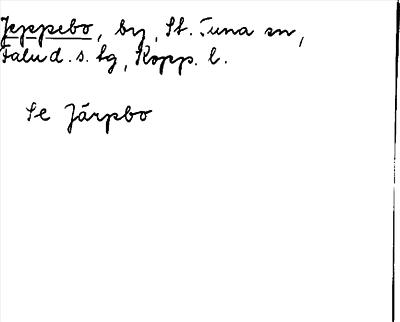 Jeppebo, by, St. Tuna sn,
Falu d. s. lg, Kopp. l.
Se Järpbo